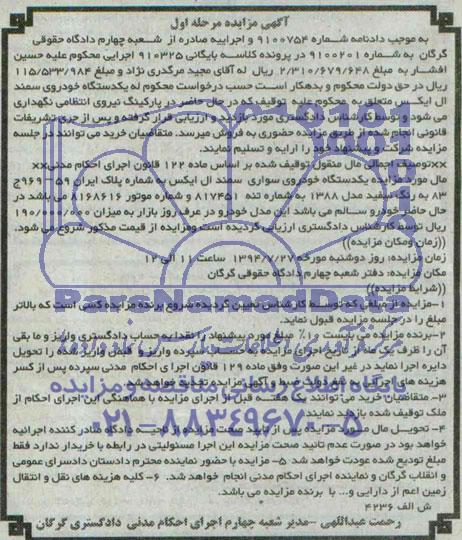 آگهی مزایده مرحله اول
به موجب دادنامه شماره ۹۱۰۰۷۵۴ و اجراییه صادره از شعبه چهارم دادگاه حقوقی
گرگان به شماره ۹۱۰۰۲۰۱ در پرونده کلاسه بایگانی ۹۱۰۳۲۵ اجرایی محکوم علیه حسین
افشار به مبلغ ۲/۳۱۰/۶۷۹/۶۴۸ ریال له آقای مجید مرگدری نژاد و مبلغ ۱۱۵/۵۳۳/۹۸۴
ریال در حق دولت محکوم و بدهکار است حسب درخواست محکوم له یکدستگاه خودروی سمند
ال ایکس متعلق به محکوم علیه توقیف که در حال حاضر در پارکینگ نیروی انتظامی نگهداری
می شود و توسط کارشناس دادگستری مورد بازدید و ارزیابی قرار گرفته و پس از جری تشریفات
قانونی انجام شده از طریق مزایده حضوری به فروش میرسد. متقاضیان خرید می توانند در جلسه
مزایده شرکت و پیشنهاد خود را ارایه و تسلیم نمایند.
××توصیف اجمالی مال منقول توقیف شده بر اساس ماده ۱۲۲ قانون اجرای احکام مدنی××
مال مورد مزایده یکدستگاه خودروی سواری سمند ال ایکس به شماره پلاک ایران ۵۹–۹۶۹ج
۸۳ به رنگ سفید مدل ۱۳۸۸ به شماره تنه ۸۱۷۴۵۱ و شماره موتور ۸۱۶۸۶۱۶ می باشد در
حال حاضر خودرو سالم می باشد این مدل خودرو در عرف روز بازار به میزان ۱۹۰/۰۰۰/۰۰۰
ریال توسط کارشناس دادگستری ارزیابی گردیده است ومزایده از قیمت مذکور شروع می شود.
((زمان ومکان مزایده))
زمان مزایده: روز دوشنبه مورخه ۱۳۹۴/۷/۲۷ ساعت ۱۱ الی ۱۲
مکان مزایده: دفتر شعبه چهارم دادگاه حقوقی گرگان
((شرایط مزایده))
۱–مزایده از مبلغی که توسط کارشناس تعیین گردیده شروع برنده مزایده کسی است که بالاتر
مبلغ را در جلسه مزایده قبول نماید.
۲–برنده مزایده می بایست ۱۰٪ مبلغ مورد پیشنهاد را نقدا به حساب دادگستری واریز و ما بقی
آن را ظرف یک ماه از تاریخ اجرای مزایده به حساب سپرده واریز و فیش واریز شده را تحویل
دایره اجرا نماید در غیر این صورت وفق ماده ۱۲۹ قانون اجرا ی احکام مدنی سپرده پس از کسر
هزینه های اجرایی به نفع دولت ضبط و آگهی مزایده تجدید خواهد شد
۳– متقاضیان خرید می توانند یک هفته قبل از اجرای مزایده با هماهنگی این اجرای احکام از
ملک توقیف شده بازدید نمایند
۴– تحویل مال مورد مزایده پس از تایید صحت مزایده از ناحیه دادگاه صادر کننده اجرائیه
خواهد بود در صورت عدم تائید صحت مزایده این اجرا مسئولیتی در رابطه با خریدار ندارد فقط
مبلغ تودیع شده عودت خواهد شد ۵– مزایده با حضور نماینده محترم دادستان دادسرای عمومی
و انقلاب گرگان و نماینده اجرای احکام مدنی انجام خواهد شد. ۶–کلیه هزینه های نقل و انتقال
زمین اعم از دارایی و... با برنده مزایده می باشد.
ش الف ۴۲۳۶
رحمت عبداللهی –مدیر شعبه چهارم اجرای احکام مدنی دادگستری گرگان
ParsNamadData
پایگاه اطلاع رسانی مناقصه و مزایده
۰۲۱–۸۸۳۴۹۶۷۰–۵